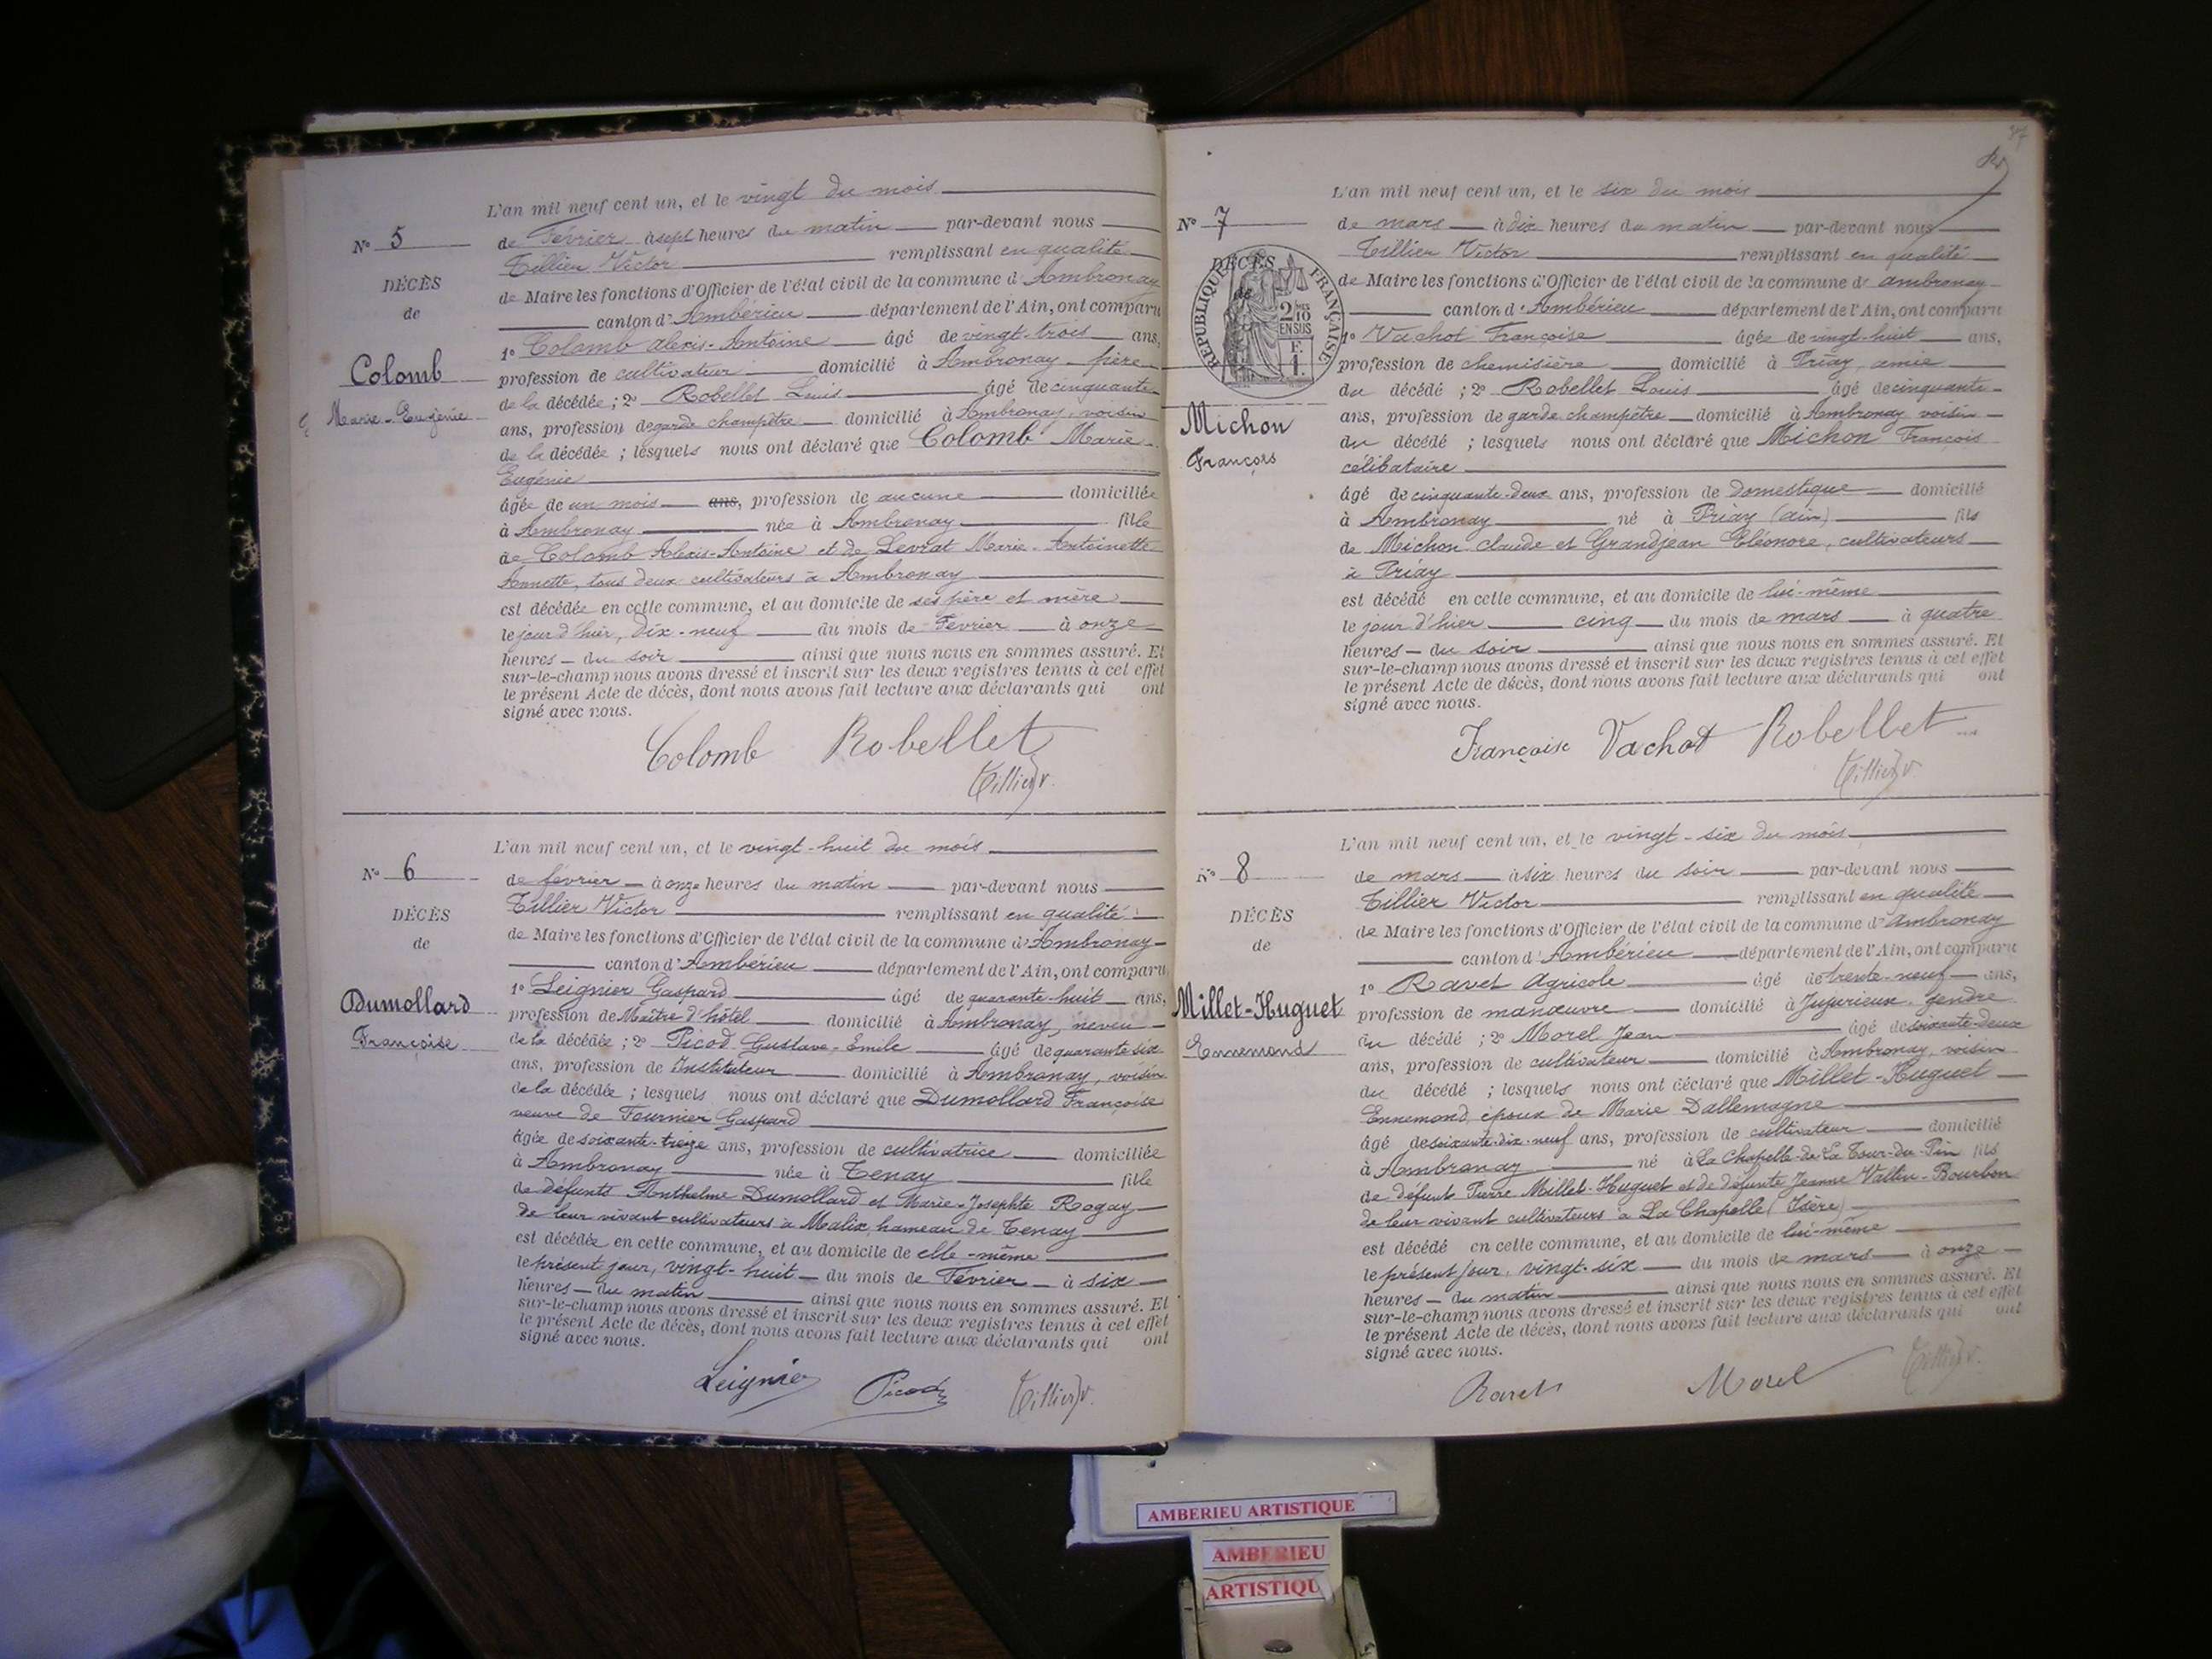 L'an mil neuf cent un, et le vingt du mois
N° 5
de Février à sept heures du matin par-devant nous
Tillier Victor remplissant en qualité
DÉCÈS
de Maire les fonctions d'Officier de l'état civil de la commune d'Ambronay
de
canton d'Ambérieu département de l'Ain, ont comparu
1° Colomb Alexis-Antoine âgé de vingt-trois ans,
Colomb
profession de cultivateur domicilié à Ambronay père
Marie-Eugénie
de la décédée ; 2° Robellet Louis âgé de cinquante
ans, profession de garde champêtre domicilié à Ambronay, voisin
de la décédée ; lesquels nous ont déclaré que Colomb Marie
Eugénie
âgée de un mois ans, profession de aucune domiciliée
à Ambronay née à Ambronay fille
de Colomb Alexis-Antoine et de Levrat Marie-Antoinette
Annette, tous deux cultivateurs à Ambronay
est décédée en cette commune, et au domicile de ses père et mère
le jour d'hier, dix-neuf du mois de Février à onze
heures du soir ainsi que nous nous en sommes assuré. Et
sur-le-champ nous avons dressé et inscrit sur les deux registres tenus à cet effet
le présent Acte de décès, dont nous avons fait lecture aux déclarants qui ont
signé avec nous.
Colomb Robellet
Tillier V.
L'an mil neuf cent un, et le vingt-huit du mois
N° 6
de février à onze heures du matin par-devant nous
Tillier Victor remplissant en qualité
DÉCÈS
de Maire les fonctions d'Officier de l'état civil de la commune d'Ambronay
de
canton d'Ambérieu département de l'Ain, ont comparu
1° Leignier Gaspard âgé de quarante-huit ans,
Dumollard
profession de Maître d'hôtel domicilié à Ambronay, neveu
Françoise
de la décédée ; 2° Picod Gustave-Emile âgé de quarante six
ans, profession de Instituteur domicilié à Ambronay, voisin
de la décédée ; lesquels nous ont déclaré que Dumollard Françoise
veuve de Fournier Gaspard
âgée de soixante-treize ans, profession de cultivatrice domiciliée
à Ambronay née à Tenay fille
de défunts Anthelme Dumollard et Marie-Josephte Rogay
de leur vivant cultivateurs à Malix, hameau de Tenay
est décédée en cette commune, et au domicile de elle-même
le présent jour, vingt-huit du mois de Février à six
heures du matin ainsi que nous nous en sommes assuré. Et
sur-le-champ nous avons dressé et inscrit sur les deux registres tenus à cet effet
le présent Acte de décès, dont nous avons fait lecture aux déclarants qui ont
signé avec nous.
Leignier Picod Tillier V.
L'an mil neuf cent un, et le six du mois
N° 7
de mars à dix heures du matin par-devant nous
Tillier Victor remplissant en qualité
DÉCÈS
de
RÉPUBLIQUE FRANÇAISE
2/10 EN SUS
de Maire les fonctions d'Officier de l'état civil de la commune d'ambronay
canton d'Ambérieu département de l'Ain, ont comparu
1° Vachot Françoise âgée de vingt-huit ans,
profession de chemisière domicilié à Priay, amie
du décédé ; 2° Robellet Louis âgé de cinquante
Michon
ans, profession de garde champêtre domicilié à Ambronay voisin
François
du décédé ; lesquels nous ont déclaré que Michon François
célibataire
âgé de cinquante-deux ans, profession de domestique domicilié
à Ambronay né à Priay (ain) fils
de Michon claude et Grandjean Eléonore, cultivateurs
à Priay
est décédé en cette commune, et au domicile de lui-même
le jour d'hier cinq du mois de mars à quatre
heures du soir ainsi que nous nous en sommes assuré. Et
sur-le-champ nous avons dressé et inscrit sur les deux registres tenus à cet effet
le présent Acte de décès, dont nous avons fait lecture aux déclarants qui ont
signé avec nous.
Françoise Vachot Robellet
Tillier V.
L'an mil neuf cent un, et le vingt-six du mois
N° 8
de mars à six heures du soir par-devant nous
Tillier Victor remplissant en qualité
DÉCÈS
de Maire les fonctions d'Officier de l'état civil de la commune d'Ambronay
de
canton d'Ambérieu département de l'Ain, ont comparu
1° Ravet Agricole âgé de trente-neuf ans,
Millet-Huguet
profession de manœuvre domicilié à Jujurieux, gendre
Ennemond
du décédé ; 2° Morel Jean âgé de soixante-deux
ans, profession de cultivateur domicilié à Ambronay, voisin
du décédé ; lesquels nous ont déclaré que Millet-Huguet
Ennemond époux de Marie Dallemagne
âgé de soixante-dix-neuf ans, profession de cultivateur domicilié
à Ambronay né à La Chapelle-de-La Tour-du-Pin fils
de défunt Pierre Millet-Huguet et de défunte Jeanne Vallin-Bourbon
de leur vivant cultivateurs à La Chapelle (Isère)
est décédé en cette commune, et au domicile de lui-même
le présent jour, vingt-six du mois de mars à onze
heures du matin ainsi que nous nous en sommes assuré. Et
sur-le-champ nous avons dressé et inscrit sur les deux registres tenus à cet effet
le présent Acte de décès, dont nous avons fait lecture aux déclarants qui ont
signé avec nous.
Ravet Morel Tillier V.
AMBERIEU ARTISTIQUE
AMBERIEU
ARTISTIQU